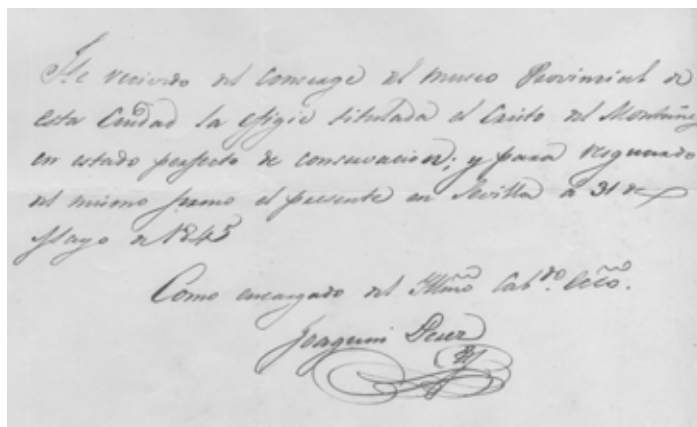 He recivido del Conserge del museo Provincial de
esta Ciudad la efigie titulada el Cristo del Montañes
en estado perfecto de conservacion; y para resguardo
del mismo firmo el presente en Sevilla a 31 de
Mayo de 1845
Como encargado del Illmo Cabdo. Ecco.
Joaquin Perez